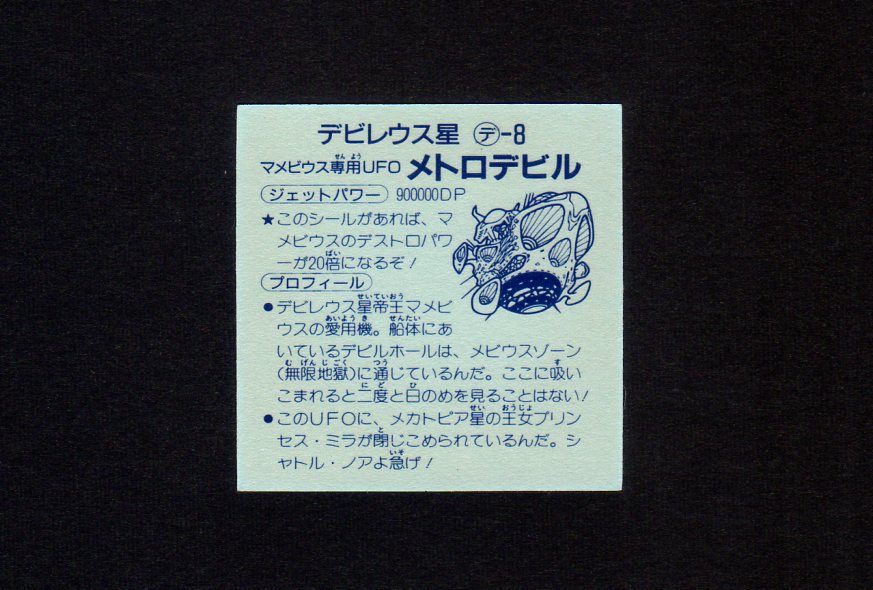 デビレウス星 ㋣-8
マメビウス専用UFO メトロデビル
ジェットパワー 900000DP
★このシールがあれば、マ
メビウスのデストロパワ
ーが20倍になるぞ!
プロフィール
●デビレウス星帝王マメビ
ウスの愛用機。船体にあ
いているデビルホールは、メビウスゾーン
(無限地獄)に通じているんだ。ここに吸い
こまれると二度と日のめを見ることはない!
●このUFOに、メカトピア星の王女プリン
セス・ミラが閉じこめられているんだ。シ
ャトル・ノアよ急げ!